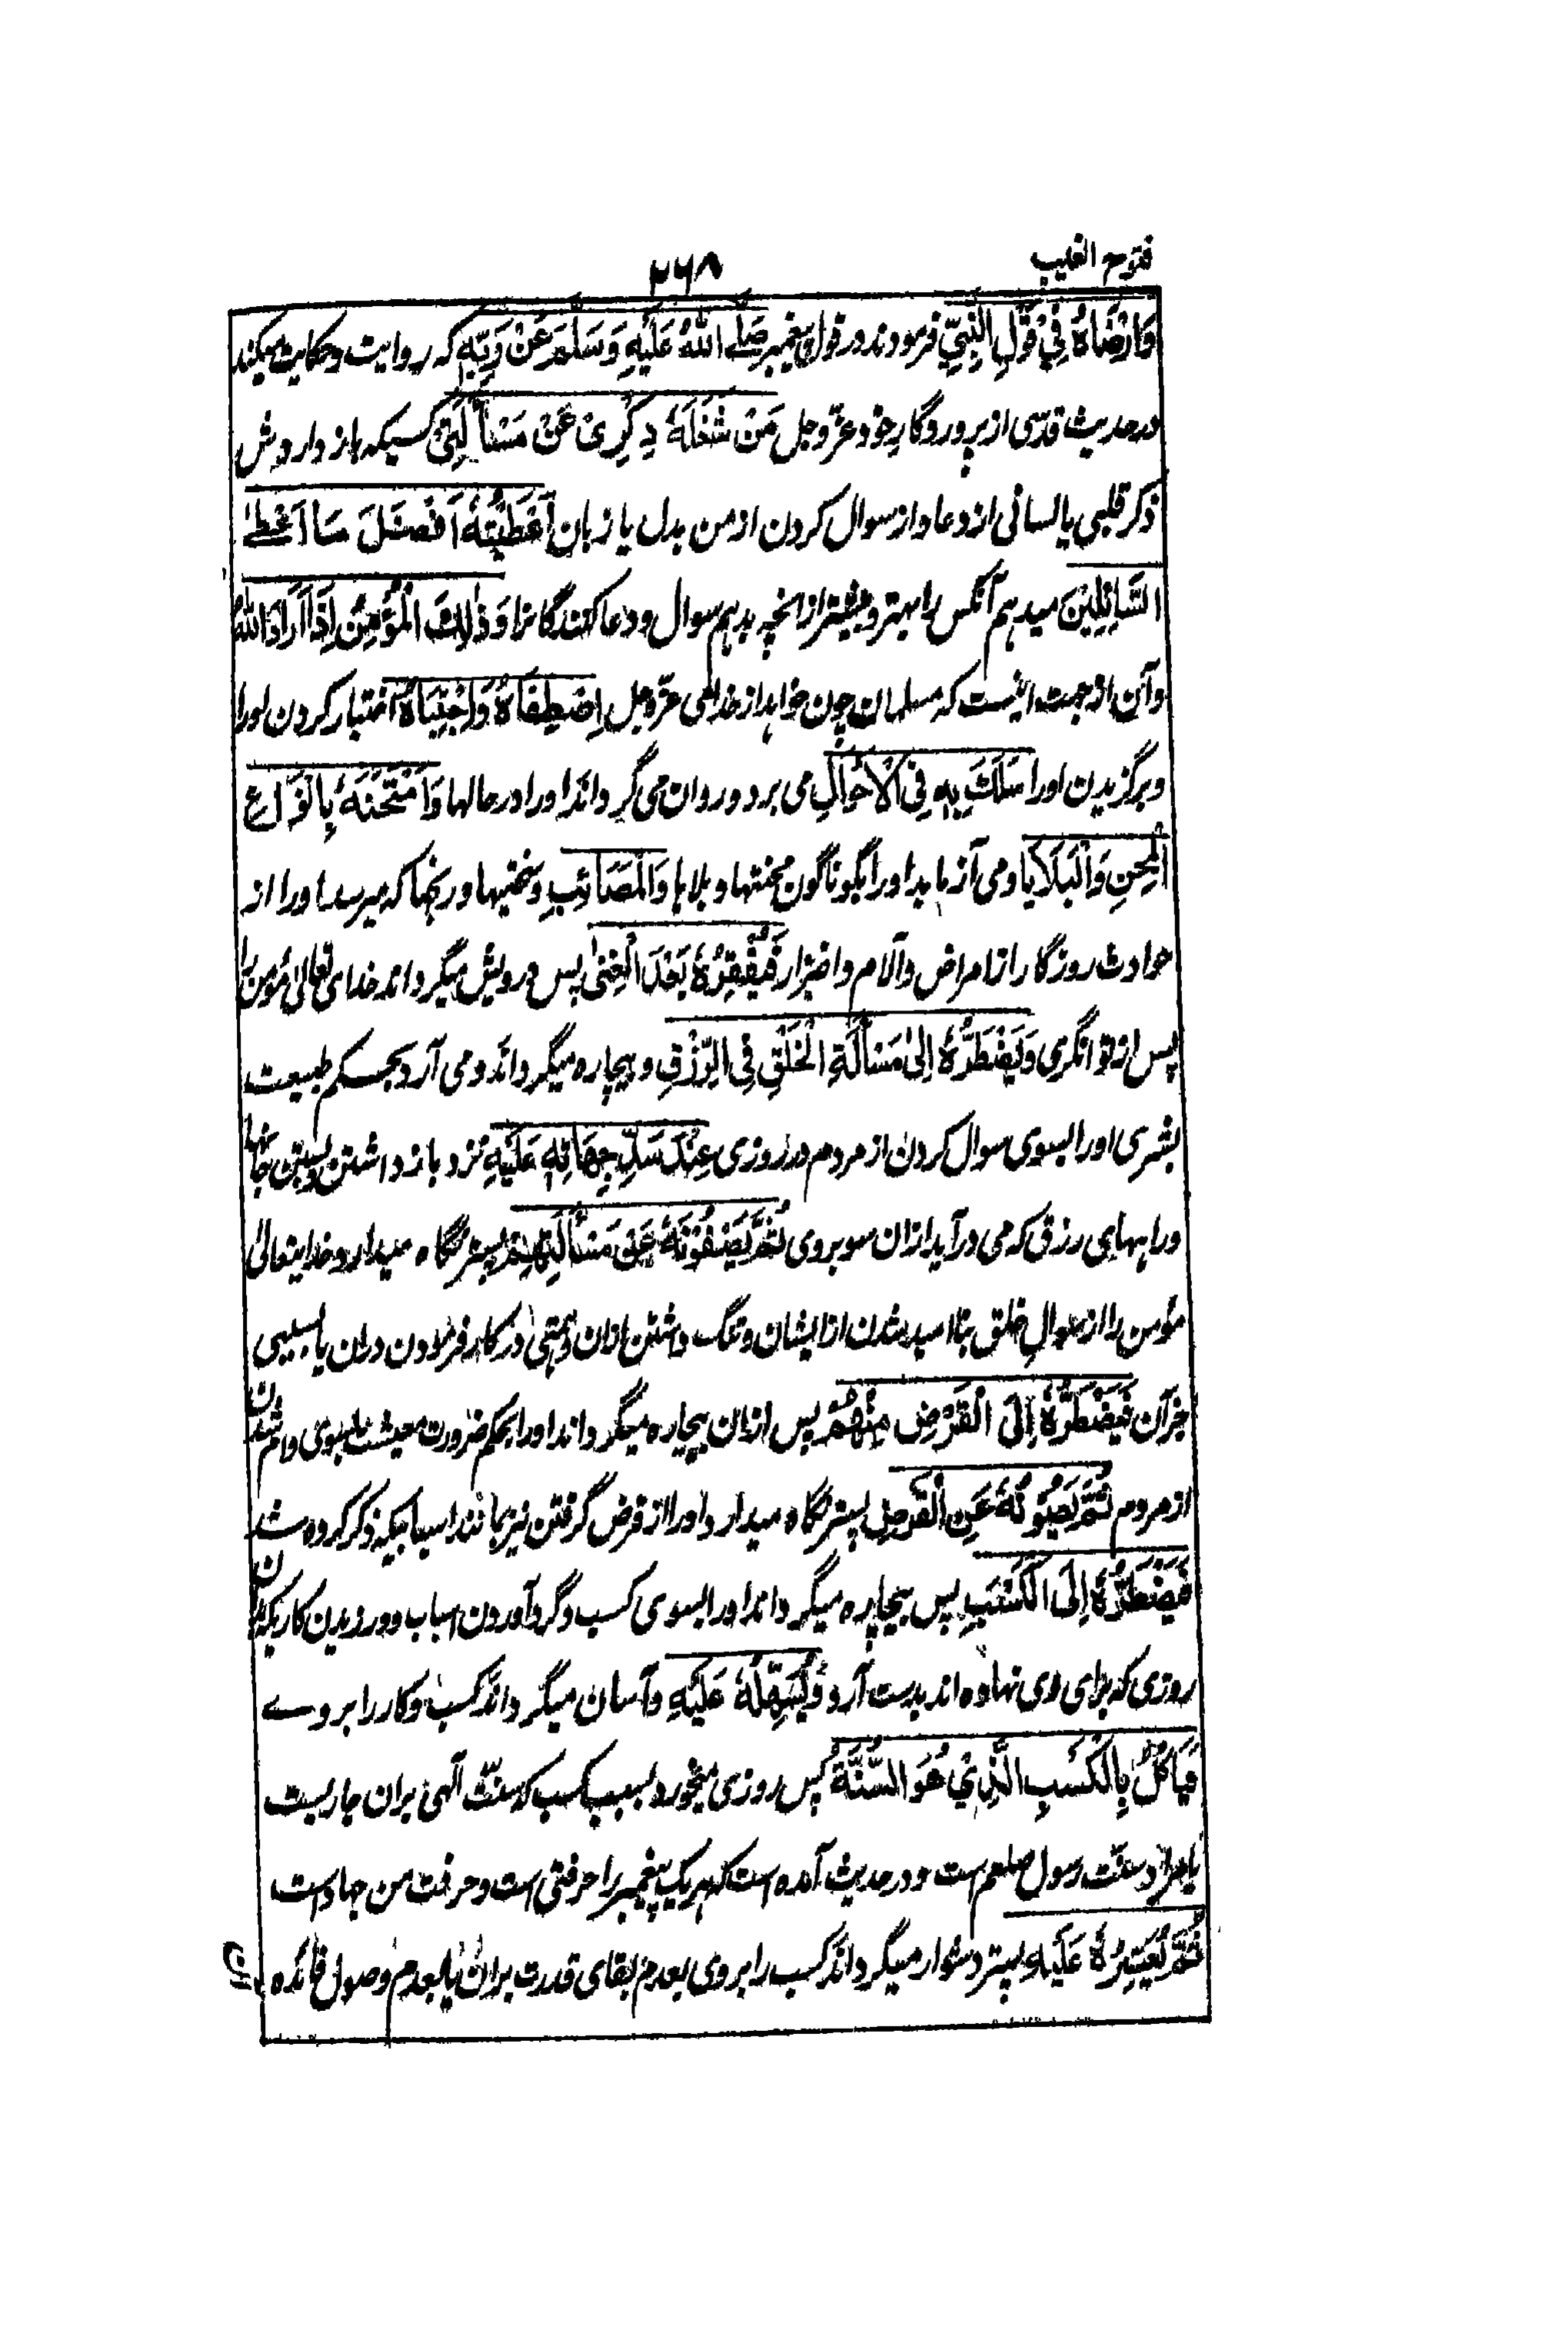 فتوح الغیب
۲۶۸
وَارْضَاهُ فِيْ قَوْلِ النَّبِيِّ فرمودند در قول پیغمبر صَلَّے اللّٰهُ عَلَیْهِ وَسَلَّمَ عَنْ رَبِّهٖ که روایت و حکایت میکند
در حدیث قدسی از پروردگار خود عزّ و جل مَنْ شَغَلَهٗ ذِکْرِیْ عَنْ مَسْأَلَتِیْ کسیکه باز داردش
ذکر قلبی یا لسانی از دعا و از سوال کردن از من بدل یا زبان اَعْطَیْتُهٗ اَفْضَلَ مَا اُعْطِے
السَّائِلِیْنَ میدهم آنکس را بهتر و بیشتر از انچه بدهم سوال و دعا کنندگانرا وَذٰلِكَ الْمُؤْمِنُ اِذَا اَرَادَ اللّٰهُ
و آن از جهت اینست که مسلمان چون خواهد از خدای عزّ و جل اِصْطِفَاهُ وَاجْتِبَاهُ اختیار کردن اورا
و برگزیدن اورا سَلَكَ بِهٖ فِی الْاَحْوَالِ می برد و روان می گرداند اورا در حالها وَامْتَحَنَهٗ بِاَنْوَاعِ
الْمِحَنِ وَالْبَلَایَا و می آزماید اورا بگوناگون محنتها و بلاها وَالْمَصَائِبِ و سختیها و رنجها که میرسد اورا از
حوادث روزگار از امراض و آلام و اضرار فَیُفْقِرُهٗ بَعْدَ الْغِنٰی پس درویش میگرداند خدای تعالی مؤمن را
پس از توانگری وَیَضْطَرُّهٗ اِلٰی مَسْأَلَةِ الْخَلْقِ فِی الرِّزْقِ و بیچاره میگرداند و می آرد بحکم طبیعت
بشری اورا بسوی سوال کردن از مردم در روزی عِنْدَ سَدِّ جِهَاتِهٖ عَلَیْهِ نزد باز داشتن و بستن جانبها
و راههای رزق که می درآید ازان سو بروی ثُمَّ یَصُوْنُهٗ عَنْ مَسْأَلَتِهِمْ پستر نگاه میدارد خدایتعالی
مؤمن را از سوال خلق بنا امید شدن از ایشان و ننگ داشتن ازان و همتی در کار فرمودن دران یا بسببی
جز آن فَیَضْطَرُّهٗ اِلَی الْقَرْضِ مِنْهُمْ پس ازان بیچاره میگرداند اورا بحکم ضرورت معیشت بسوی وام شدن
از مردم ثُمَّ یَصُوْنُهٗ عَنِ الْقَرْضِ پستر نگاه میدارد اورا از قرض گرفتن نیز بمانند اسبابیکه ذکر کرده شد
فَیَضْطَرُّهٗ اِلَی الْکَسْبِ پس بیچاره میگرداند اورا بسوی کسب و گردآوردن اسباب و ورزیدن کاریکه ازان
روزی که برای وی نهاده اند بدست آرد وَیُسَهِّلُهٗ عَلَیْهِ و آسان میگرداند کسب و کار را بر وے
فَیَاْکُلُ بِالْکَسْبِ الَّذِيْ هُوَ السُّنَّةُ پس روزی میخورد بسبب کسب که سنّت الٰهی بران جاریست
یا مراد سنّت رسول صلعم است و در حدیث آمده است که هر یک پیغمبر را حرفتی است و حرفت من جهاد است
ثُمَّ یُعَسِّرُهٗ عَلَیْهِ پستر دشوار میگرداند کسب را بر وی بعدم بقای قدرت بران یا بعدم وصول فائده